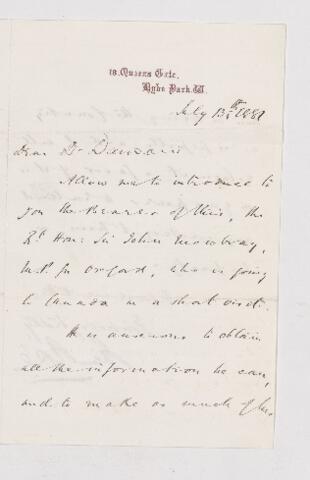 18. Queens Gate.
Hyde Park. W.
July 13th 1881
Dear Dr Dawson
Allow me to introduce to
you the Bearer of this, the
Rt Hon: Sir John Mowbray,
M.P. for Oxford, who is going
to Canada on a short visit.
He is anxious to obtain
all the information he can,
and to make as much of his